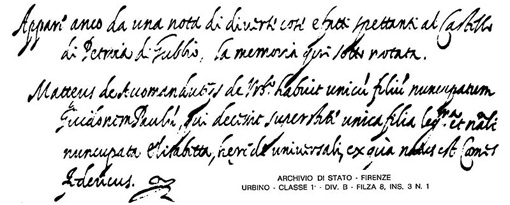 Appari^e anco da una nota di diversi cosi e fatti spettanti al Castello
di Petroia di Gubbio, la memoria qui sotto notata.
Matteus de Acomanducijs de Urb.^o habuit unicū filiū nuncupatum
Guidonem Paulū, qui decessit superstite unica filia leg.^ma et nāli
nuncupata Elisabetta, herede universali, ex qua natus est Comes
Federicus.
ARCHIVIO DI STATO - FIRENZE
URBINO - CLASSE 1ª - DIV. B - FILZA 8, INS. 3 N. 1